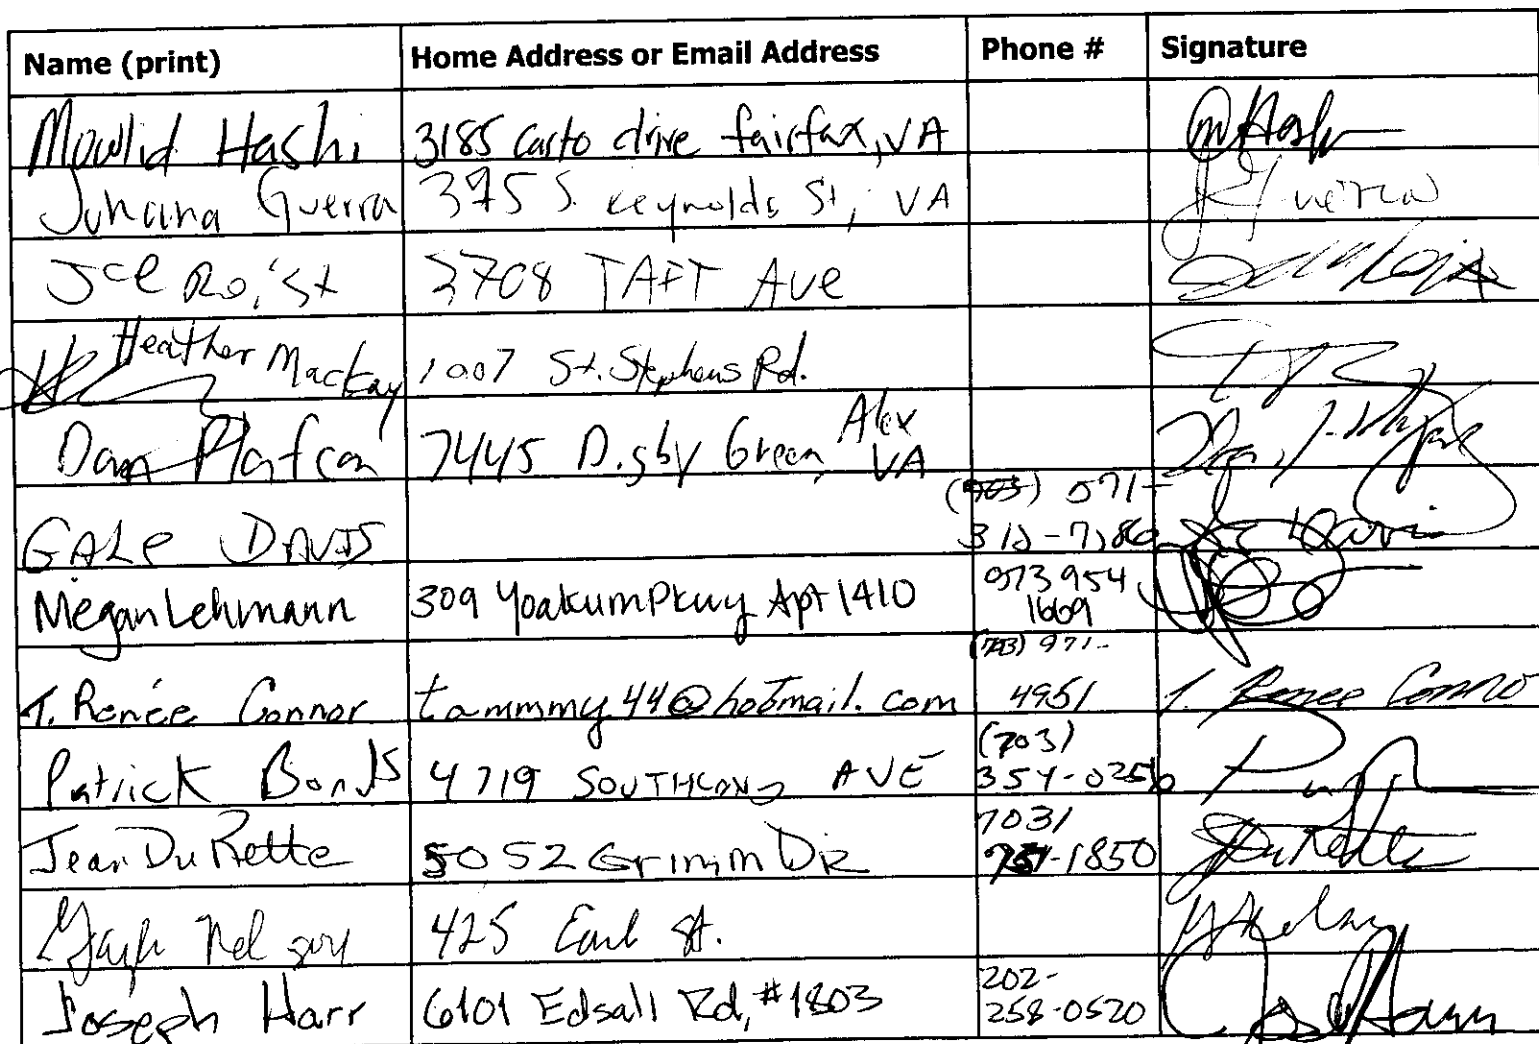 Name (print) Home Address or Email Address Phone # Signature
Mowlid Hashi 3185 Carto drive fairfax, VA M Hashi
Juhana Guerra 375 S. Reynolds St, VA J Guerra
Joel Roist 3708 TAFT AVE
Heather Mackay 1007 St. Stephens Rd.
Dan Plafcan 7445 Digby Green, Alex VA
GALE DAVIS (703) 571-
Davis
Megan Lehmann 309 Yoakum Pkwy Apt 1410 973 954 1669
T. Renée Connor tammmy44@hotmail.com (703) 971-4951 T. Renee Connor
Patrick Bonds 4719 AVE (703) 354-0256
Jean DuRette 5052 Grimm DR 703/ 751-1850 J DuRette
Gayle Nelson 425 Earl St.
Joseph Harr 6101 Edsall Rd, #1803 202-258-0520